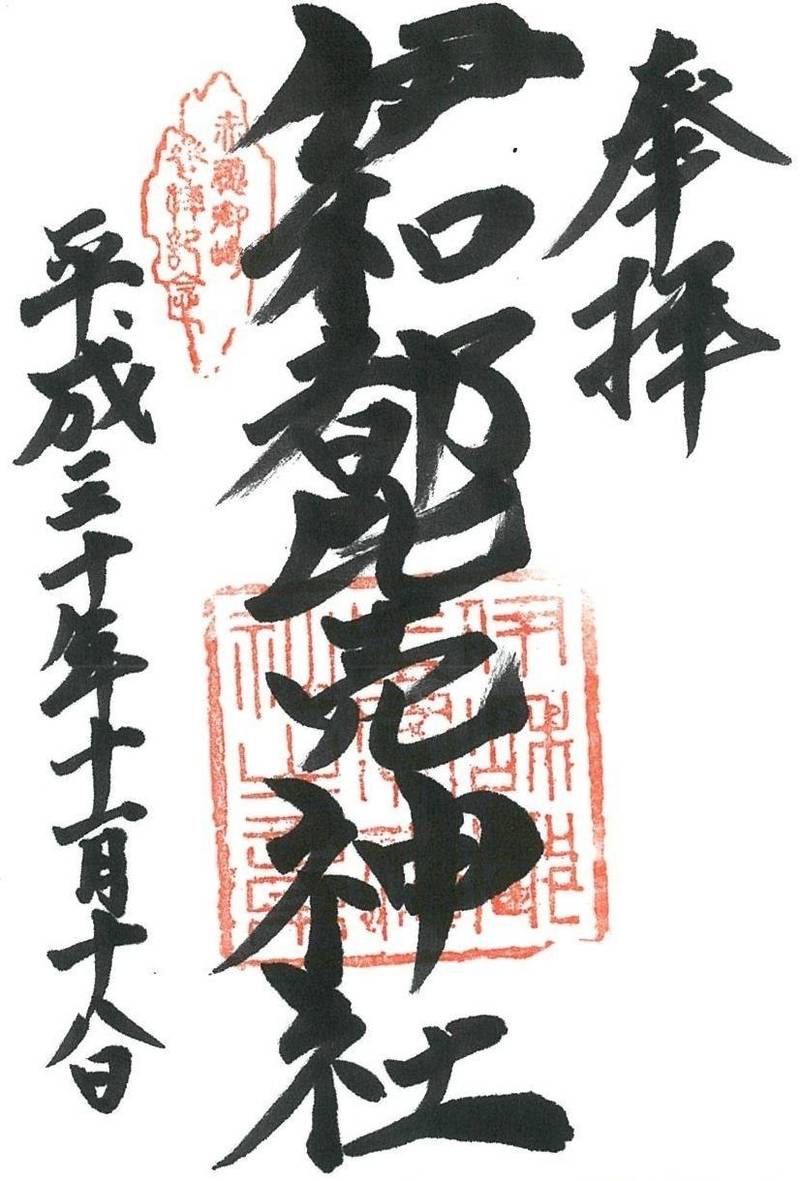 奉拝
伊和都比売神社
赤穂御崎
参拝記念
平成三十年十一月十八日